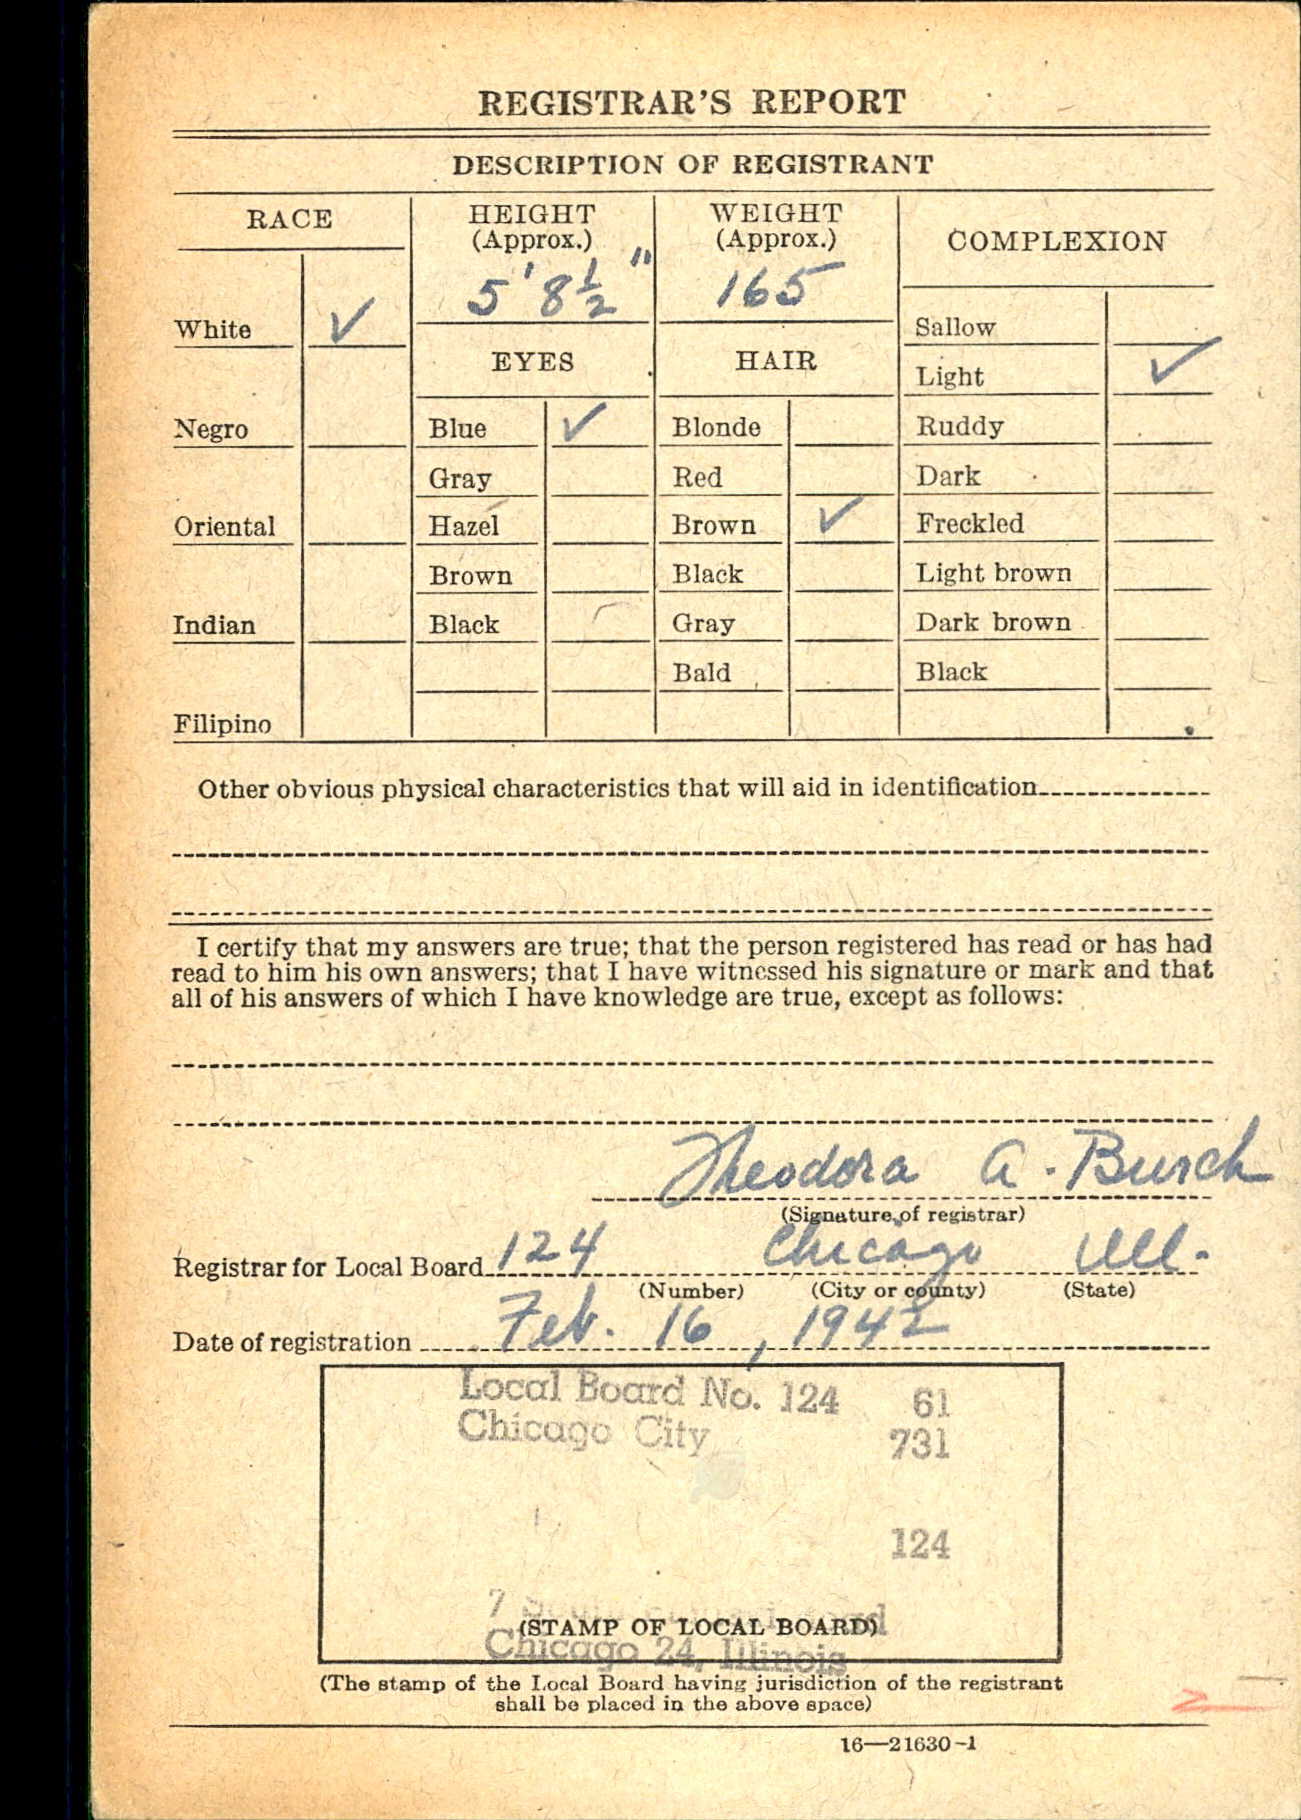 REGISTRAR'S REPORT
DESCRIPTION OF REGISTRANT
RACE
HEIGHT
(Approx.)
5' 8 1/2"
WEIGHT
(Approx.)
165
COMPLEXION
White ✓
EYES
HAIR
Sallow
Light ✓
Negro
Blue ✓
Blonde
Ruddy
Gray
Red
Dark
Oriental
Hazel
Brown ✓
Freckled
Brown
Black
Light brown
Indian
Black
Gray
Dark brown
Bald
Black
Filipino
Other obvious physical characteristics that will aid in identification
I certify that my answers are true; that the person registered has read or has had
read to him his own answers; that I have witnessed his signature or mark and that
all of his answers of which I have knowledge are true, except as follows:
Theodora A. Burch
(Signature of registrar)
Registrar for Local Board 124 Chicago Ill.
(Number) (City or county) (State)
Date of registration Feb. 16, 1942
Local Board No. 124 61
Chicago City 731
124
7
(STAMP OF LOCAL BOARD)
Chicago 24, Illinois
(The stamp of the Local Board having jurisdiction of the registrant
shall be placed in the above space)
16—21630-1